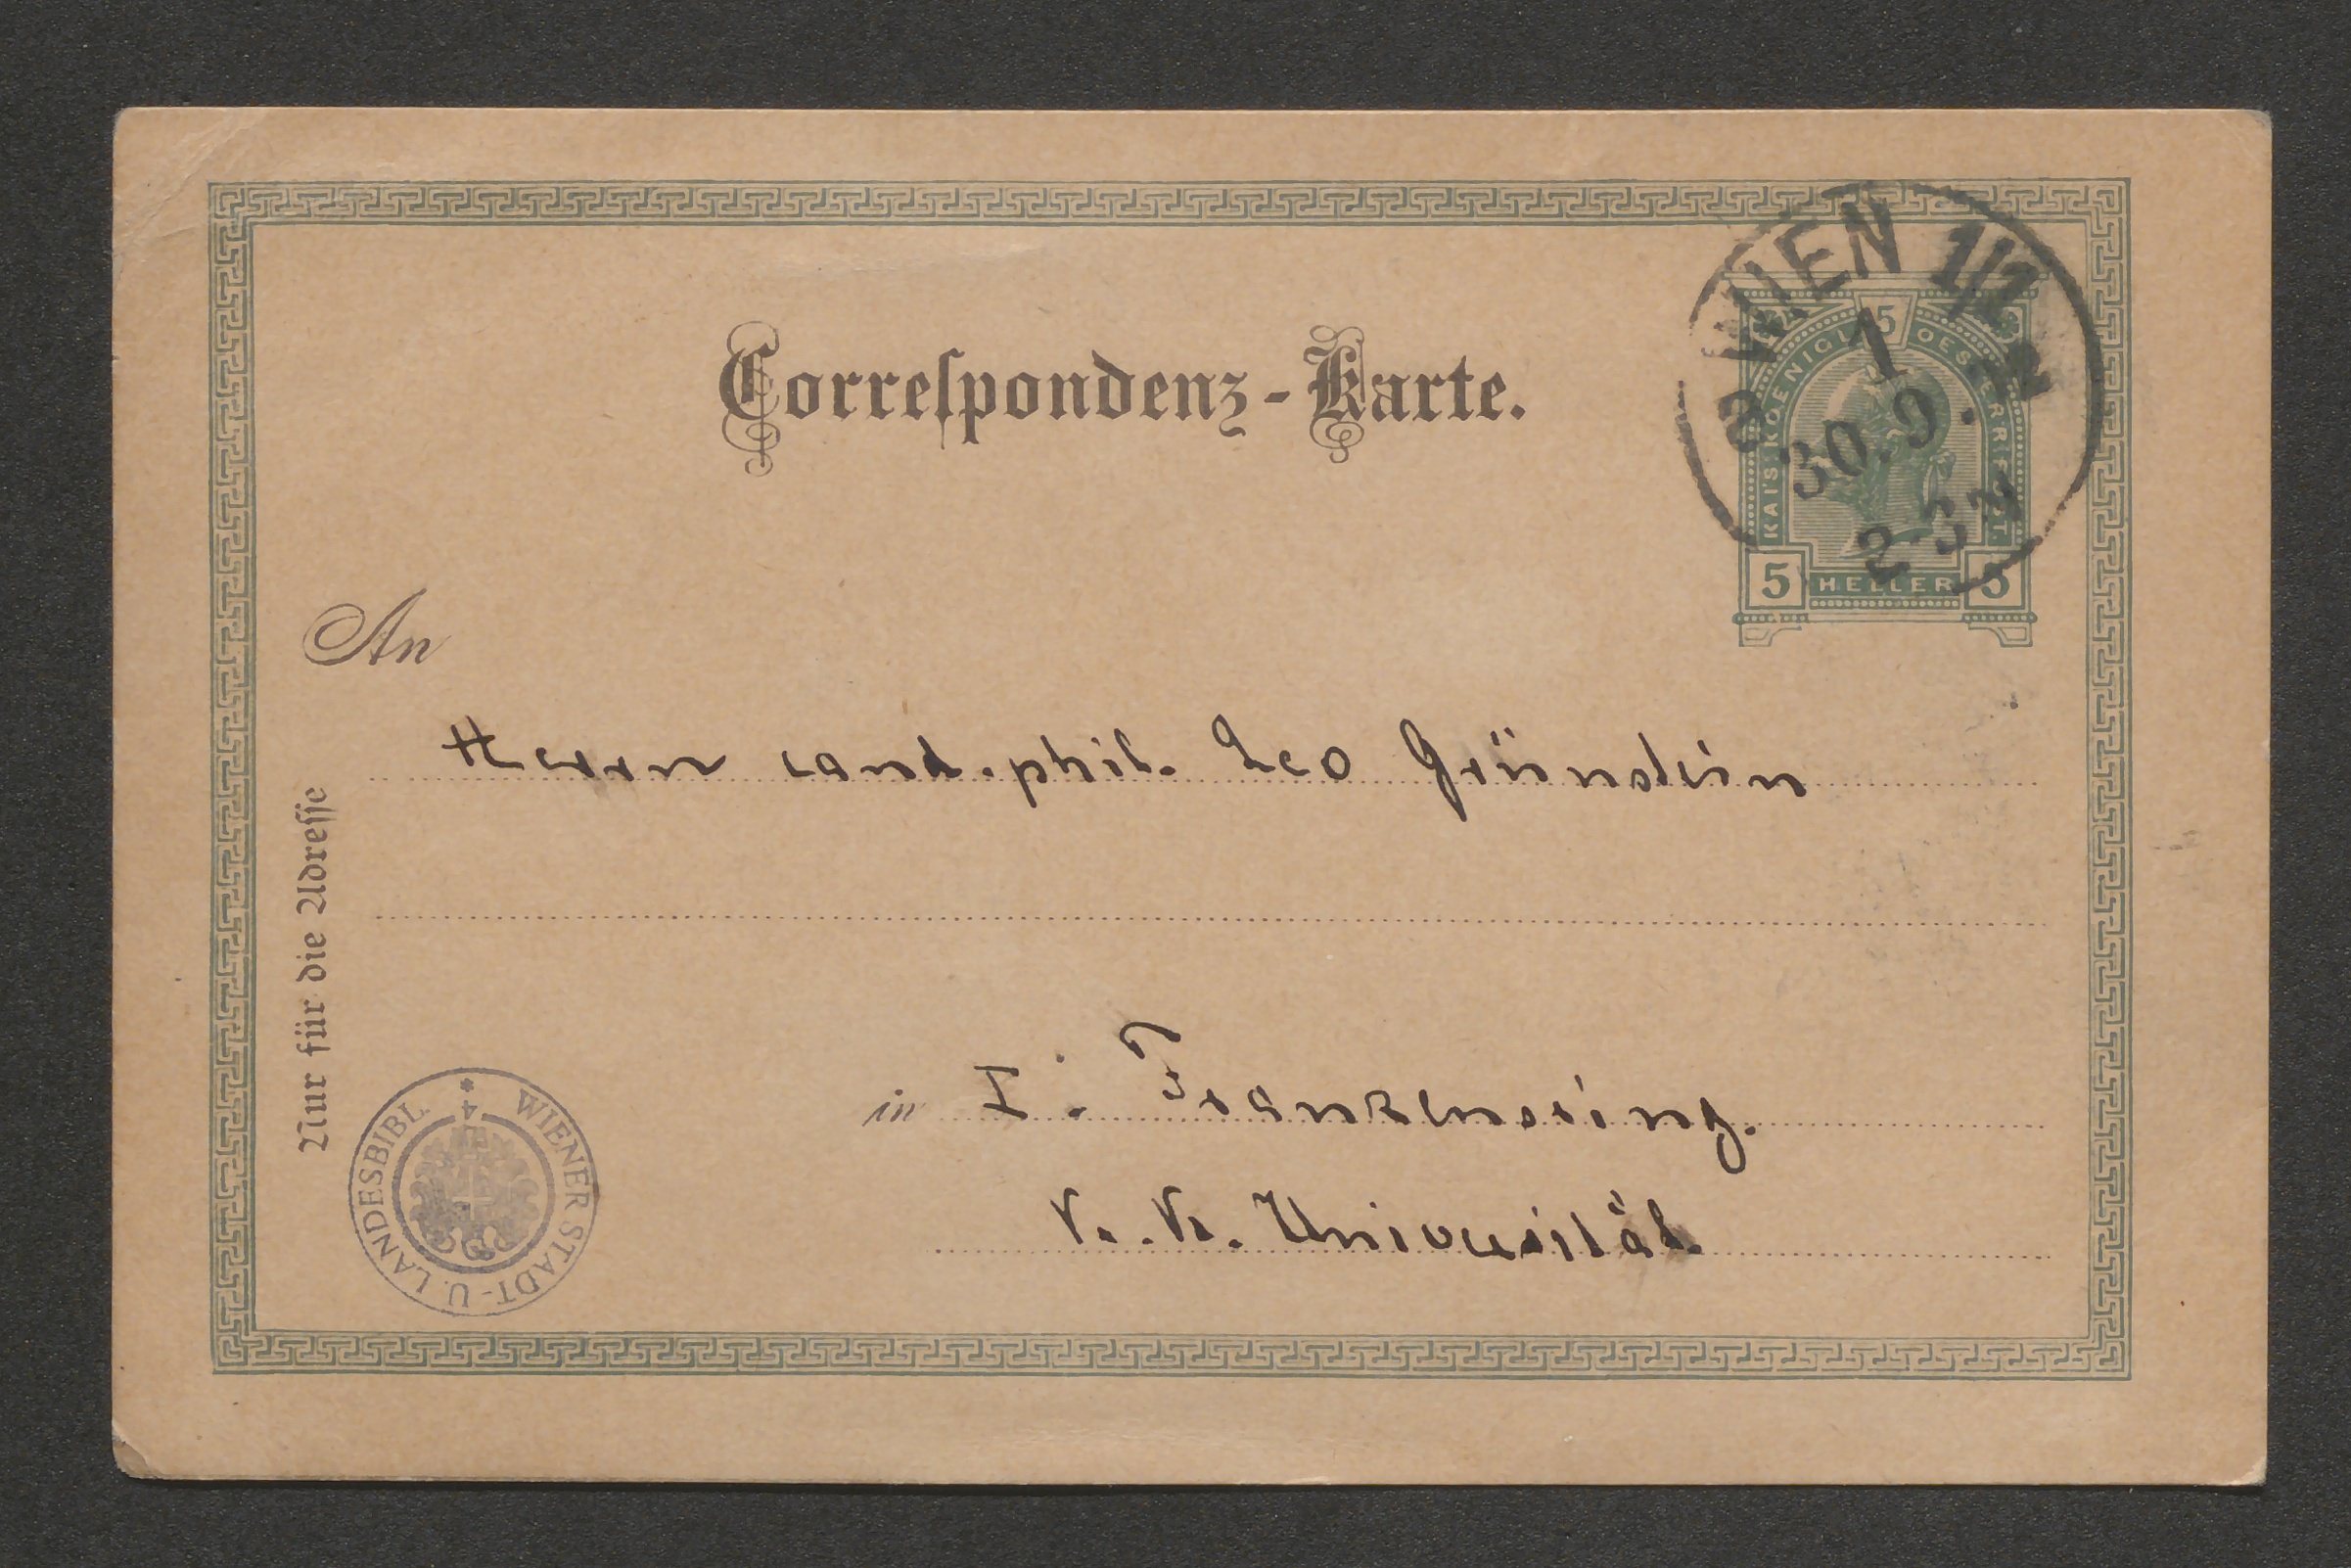 Correspondenz-Karte.
WIEN 1/1
1
30.9.
KAIS. KOENIGL. OESTERR. POST.
5
5 HELLER 5
An
Herrn cand. phil. Leo Grünstein
Nur für die Adresse
in I. Franzensring.
K. K. Universität.
* WIENER STADT- U. LANDESBIBL.